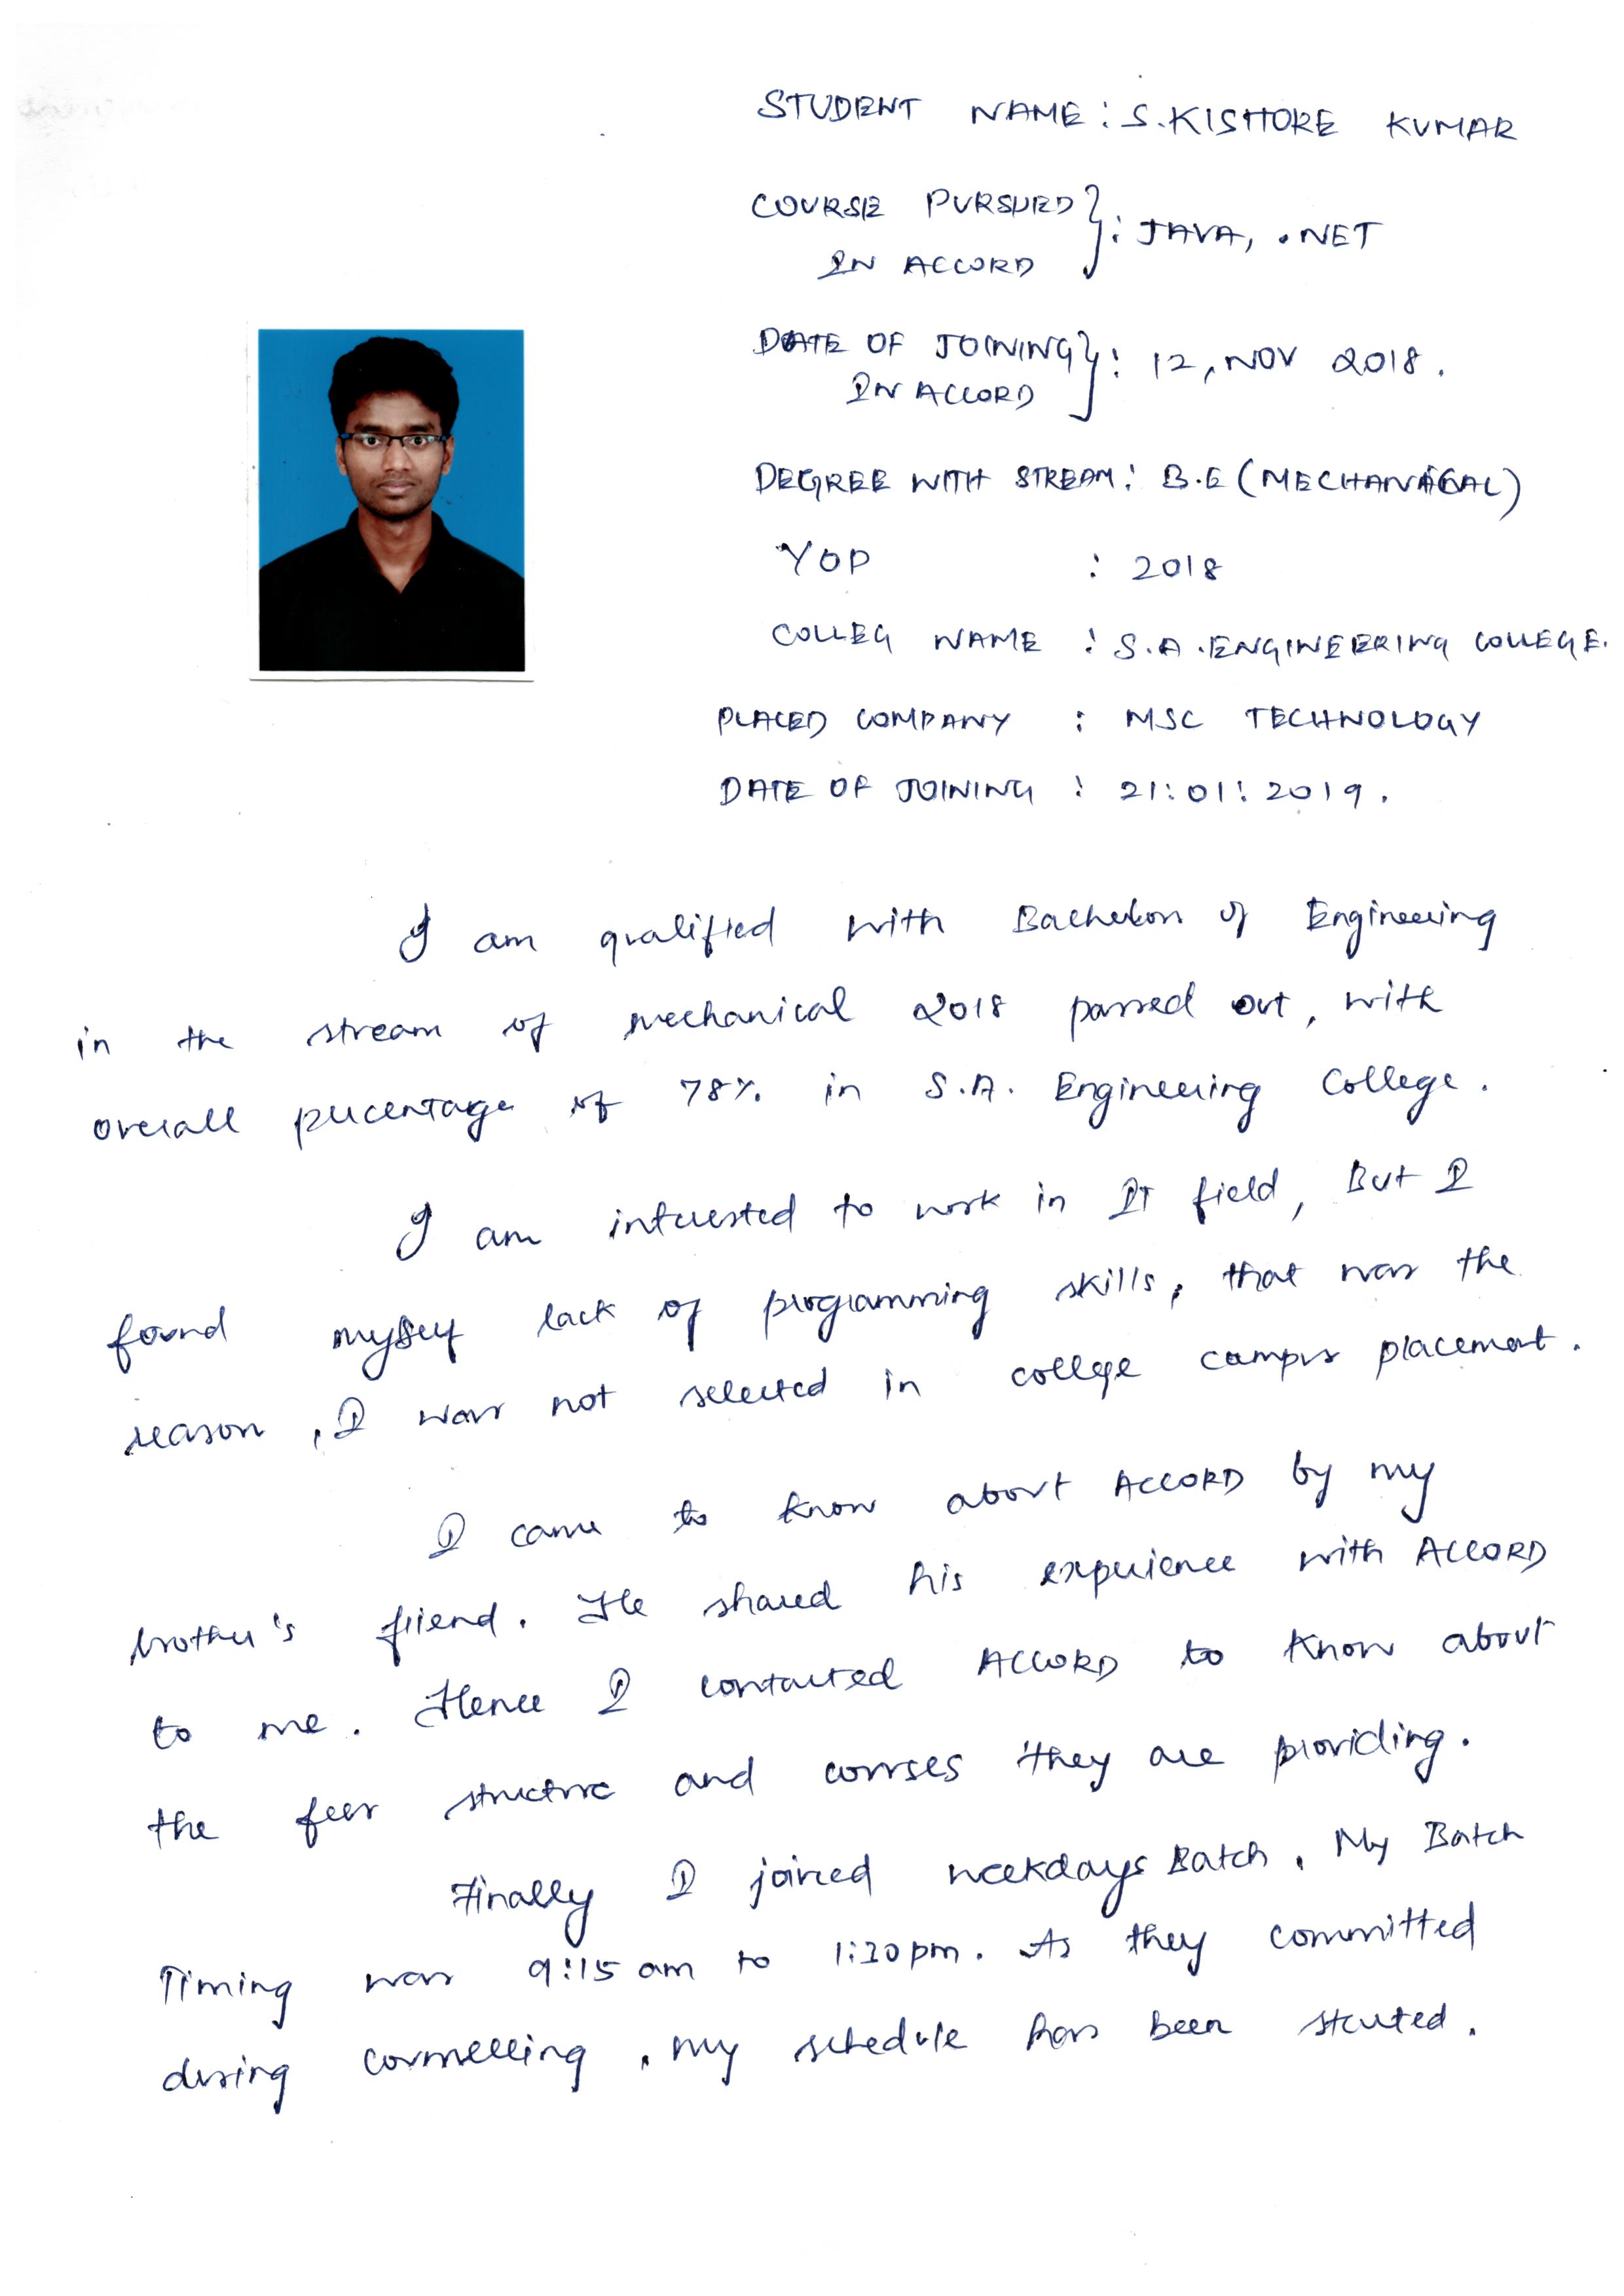 STUDENT NAME : S. KISHORE KUMAR
COURSE PURSUED
IN ACCORD } : JAVA, .NET
DATE OF JOINING
IN ACCORD } : 12, NOV 2018.
DEGREE WITH STREAM : B.E (MECHANICAL)
YOP : 2018
COLLEG NAME : S.A. ENGINEERING COLLEGE.
PLACED COMPANY : MSC TECHNOLOGY
DATE OF JOINING : 21:01:2019.
I am qualified with Bachelors of Engineering
in the stream of mechanical 2018 passed out, with
overall percentage of 78% in S.A. Engineering College.
I am interested to work in IT field, But I
found myself lack of programming skills, that was the
reason, I was not selected in college campus placement.
I came to know about ACCORD by my
brother's friend. He shared his experience with ACCORD
to me. Hence I contacted ACCORD to know about
the fees structure and courses they are providing.
Finally I joined weekdays Batch. My Batch
Timing was 9:15 am to 1:30 pm. As they committed
during counselling, my schedule has been started.